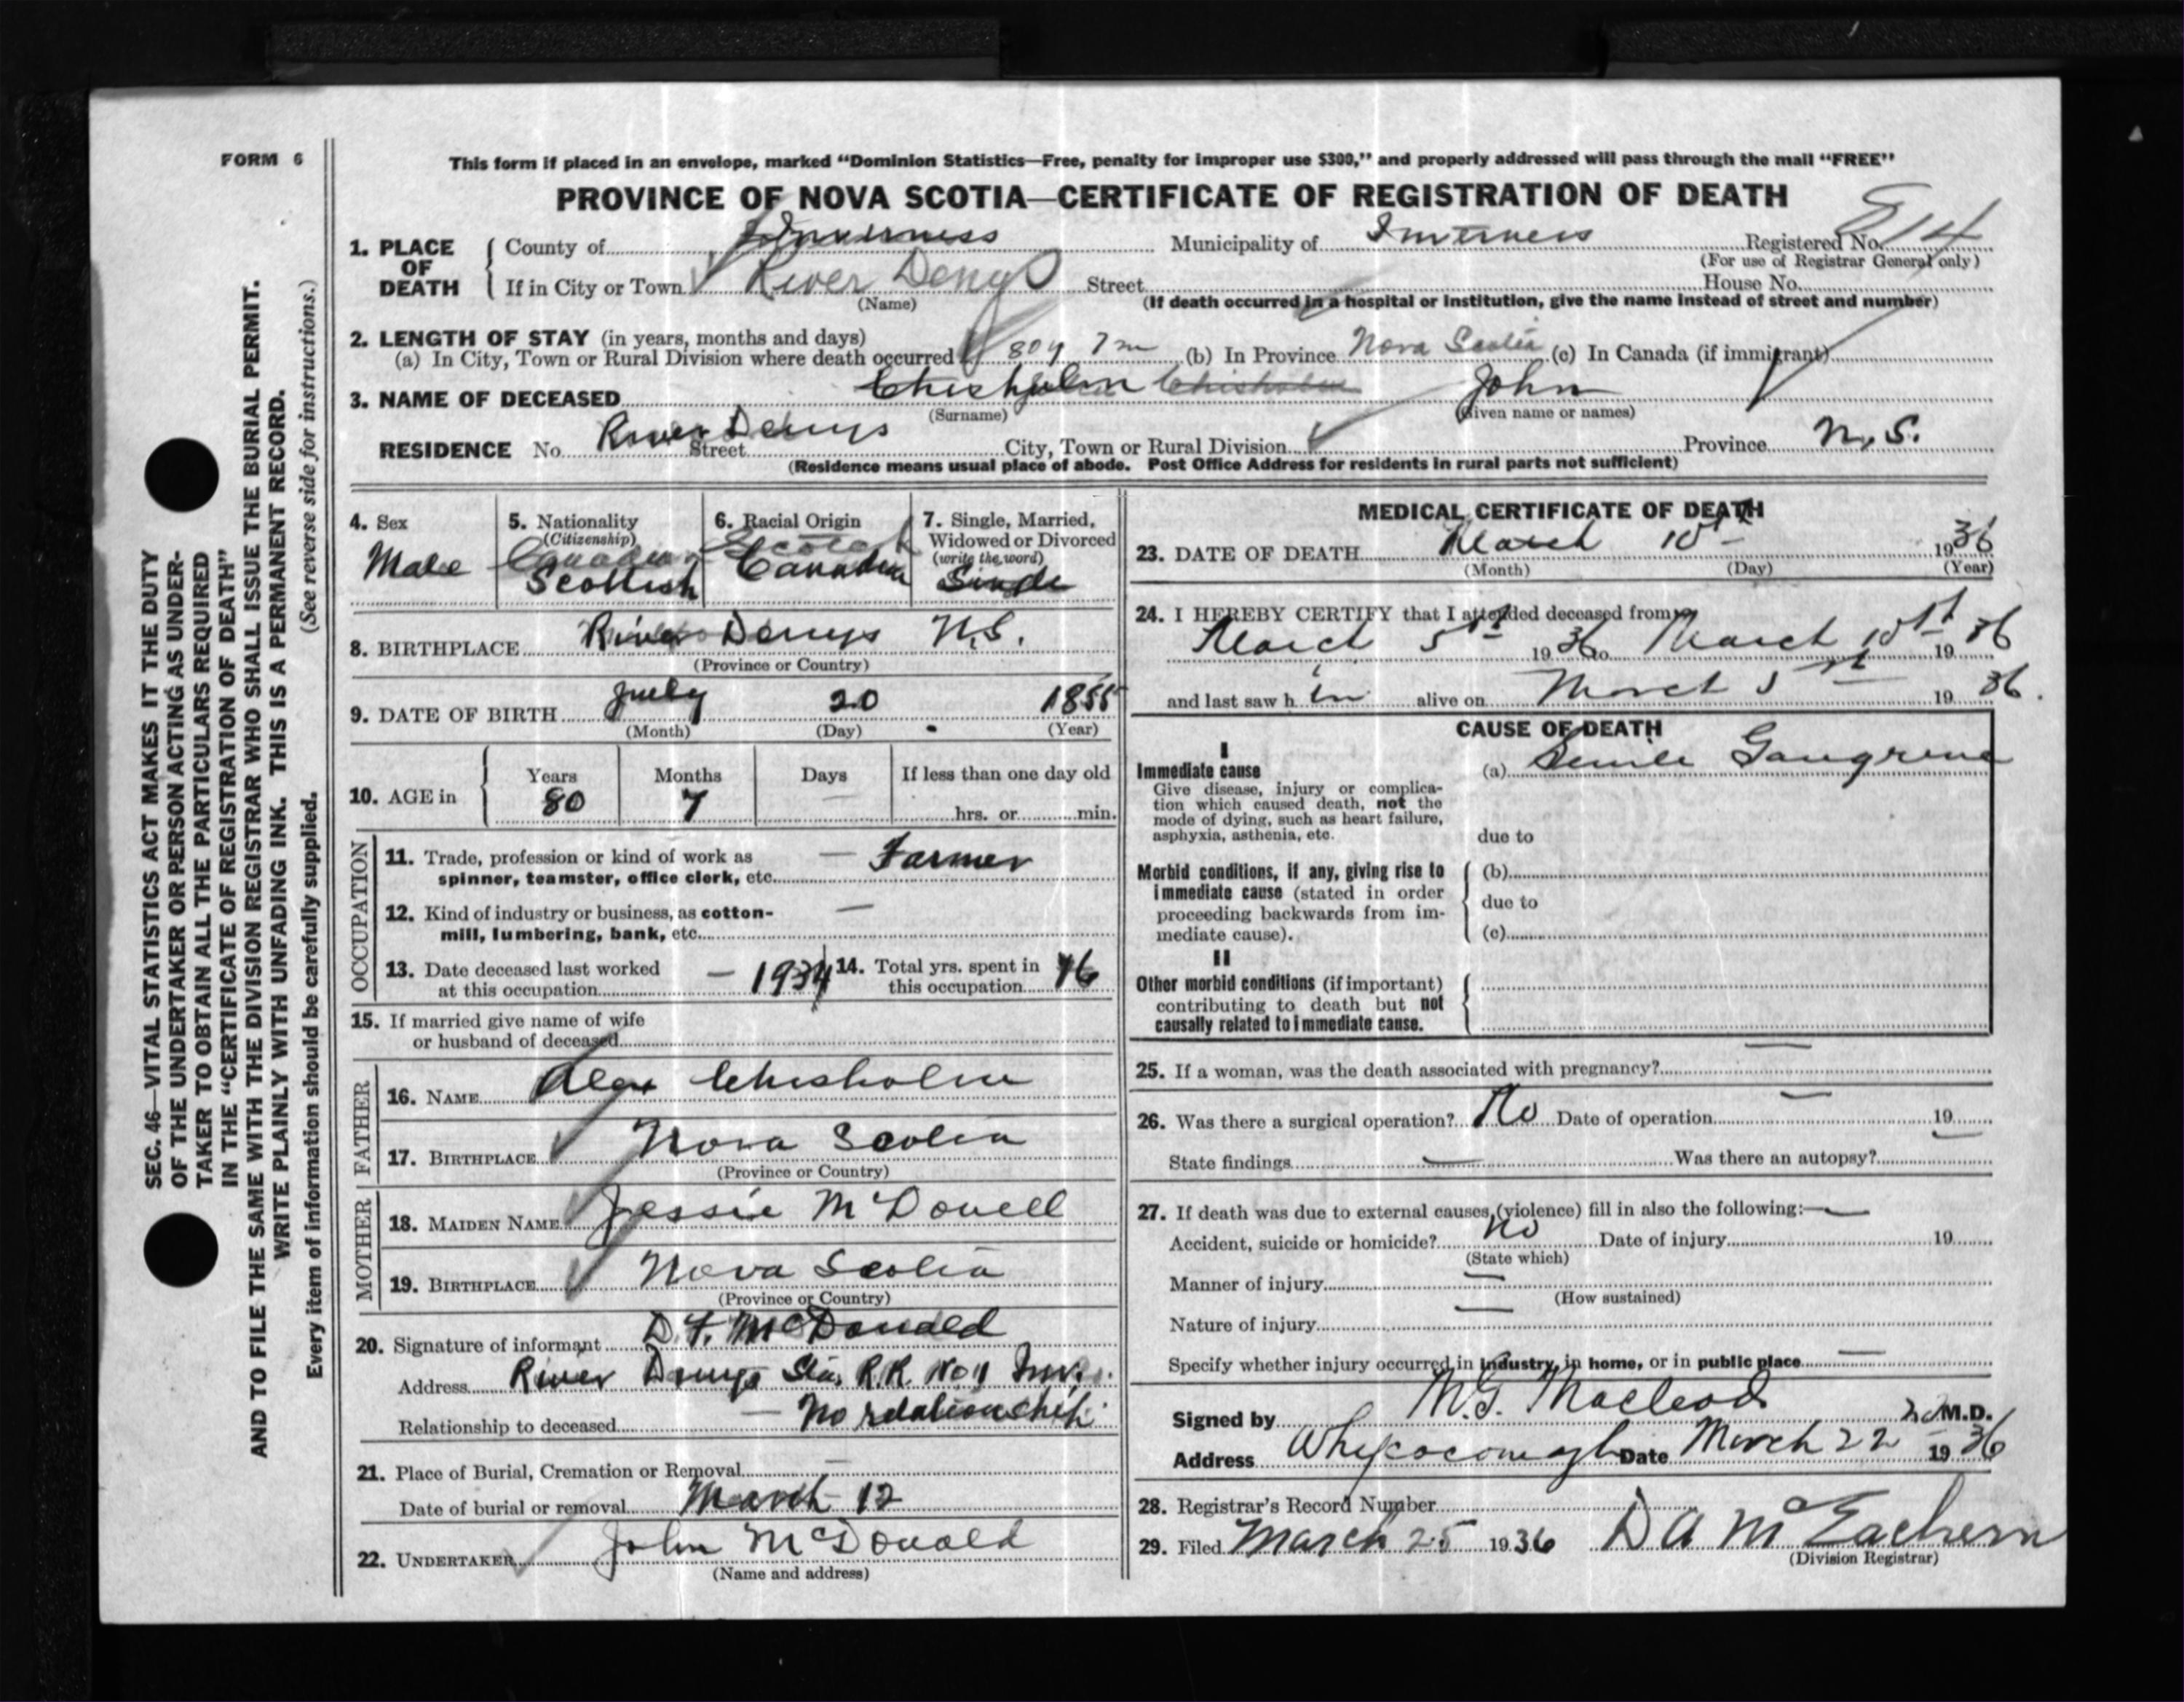 FORM 6
This form if placed in an envelope, marked “Dominion Statistics—Free, penalty for improper use $300,” and properly addressed will pass through the mail “FREE”
PROVINCE OF NOVA SCOTIA—CERTIFICATE OF REGISTRATION OF DEATH
1. PLACE OF DEATH County of Inverness Municipality of Inverness Registered No. 814
(For use of Registrar General only)
If in City or Town River Denys Street House No.
(Name) (If death occurred in a hospital or institution, give the name instead of street and number)
2. LENGTH OF STAY (in years, months and days)
(a) In City, Town or Rural Division where death occurred 80 y 7 m (b) In Province Nova Scotia (c) In Canada (if immigrant)
3. NAME OF DECEASED Chisholm Chisholm John
(Surname) (Given name or names)
RESIDENCE No. River Denys Street City, Town or Rural Division Province N.S.
(Residence means usual place of abode. Post Office Address for residents in rural parts not sufficient)
4. Sex 5. Nationality (Citizenship) 6. Racial Origin 7. Single, Married, Widowed or Divorced (write the word)
Canadian Scotch
Male Scottish Canadian Single
8. BIRTHPLACE River Denys N.S.
(Province or Country)
9. DATE OF BIRTH July 20 1855
(Month) (Day) (Year)
10. AGE in Years Months Days If less than one day old
80 7 — hrs. or min.
OCCUPATION
11. Trade, profession or kind of work as — Farmer
spinner, teamster, office clerk, etc.
12. Kind of industry or business, as cotton- —
mill, lumbering, bank, etc.
13. Date deceased last worked at this occupation — 1934 14. Total yrs. spent in this occupation 46
15. If married give name of wife
or husband of deceased
FATHER
16. NAME Alex Chisholm
17. BIRTHPLACE Nova Scotia
(Province or Country)
MOTHER
18. MAIDEN NAME Jessie McDonell
19. BIRTHPLACE Nova Scotia
(Province or Country)
20. Signature of informant D.F. McDonald
Address River Denys Sta. R.R. No 1 Inv.
Relationship to deceased — No relationship
21. Place of Burial, Cremation or Removal —
Date of burial or removal March 12
22. UNDERTAKER John McDonald
(Name and address)
MEDICAL CERTIFICATE OF DEATH
23. DATE OF DEATH March 10th 1936
(Month) (Day) (Year)
24. I HEREBY CERTIFY that I attended deceased from
March 5st 1936 to March 10st 1936
and last saw h im alive on March 5st 1936.
CAUSE OF DEATH
I
Immediate cause (a) Senile Gangrene
Give disease, injury or complica-
tion which caused death, not the
mode of dying, such as heart failure,
asphyxia, asthenia, etc. due to
Morbid conditions, if any, giving rise to (b)
immediate cause (stated in order due to
proceeding backwards from im-
mediate cause). (c)
II
Other morbid conditions (if important)
contributing to death but not
causally related to immediate cause.
25. If a woman, was the death associated with pregnancy? —
26. Was there a surgical operation? No Date of operation — 19
State findings — Was there an autopsy?
27. If death was due to external causes (violence) fill in also the following:—
Accident, suicide or homicide? No Date of injury 19
(State which)
Manner of injury —
(How sustained)
Nature of injury —
Specify whether injury occurred in industry, in home, or in public place —
Signed by M.G. Macleod M.D.
Address Whycocomagh Date March 22 1936
28. Registrar's Record Number
29. Filed March 25 1936 D A McEachern
(Division Registrar)
SEC. 46—VITAL STATISTICS ACT MAKES IT THE DUTY
OF THE UNDERTAKER OR PERSON ACTING AS UNDER-
TAKER TO OBTAIN ALL THE PARTICULARS REQUIRED
IN THE “CERTIFICATE OF REGISTRATION OF DEATH”
AND TO FILE THE SAME WITH THE DIVISION REGISTRAR WHO SHALL ISSUE THE BURIAL PERMIT.
WRITE PLAINLY WITH UNFADING INK. THIS IS A PERMANENT RECORD.
Every item of information should be carefully supplied. (See reverse side for instructions.)